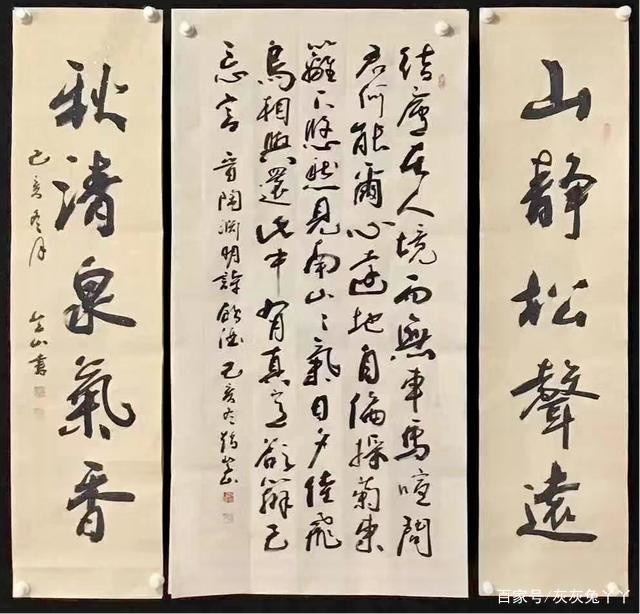 山靜松聲遠
結廬在人境而無車馬喧問
君何能爾心遠地自偏採菊東
籬下悠然見南山〻氣日夕佳飛
鳥相與還此中有真意欲辯已
忘言 晉陶淵明詩飲酒 己亥冬
秋清泉氣香
己亥冬月
山書
百家号/灰灰兔丫丫